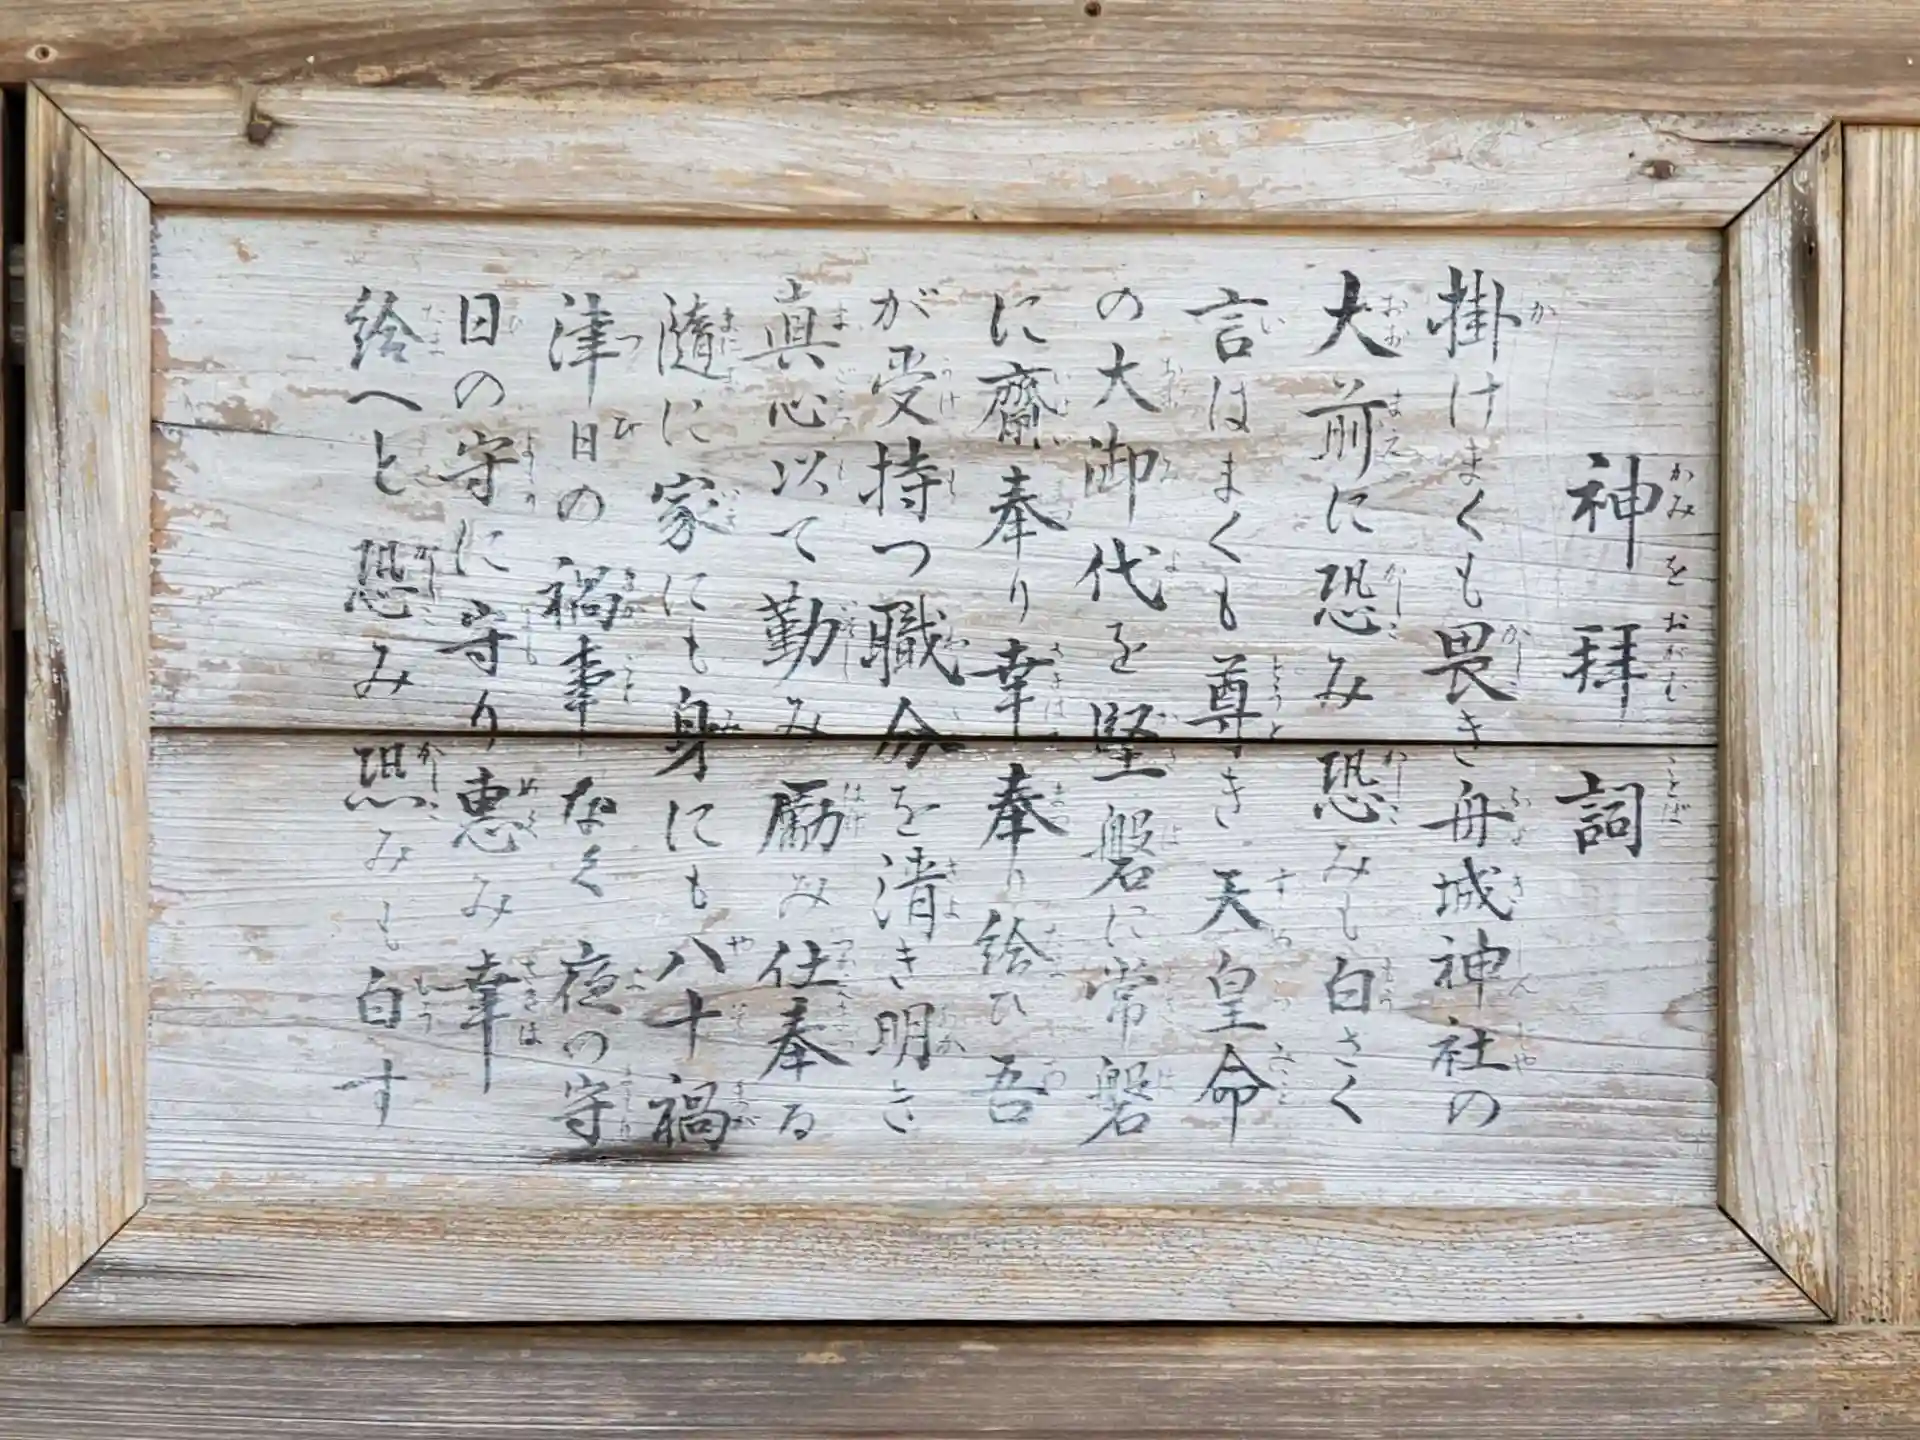 神拝詞
掛けまくも畏き舟城神社の
大前に恐み恐みも白さく
言はまくも尊き天皇命
の大御代を堅磐に常磐
に齋奉り幸奉り給ひ吾
が受持つ職分を清き明き
真心以て勤み励み仕奉る
隨に家にも身にも八十禍
津日の禍事なく夜の守
日の守に守り恵み幸
給へと恐み恐みも白す